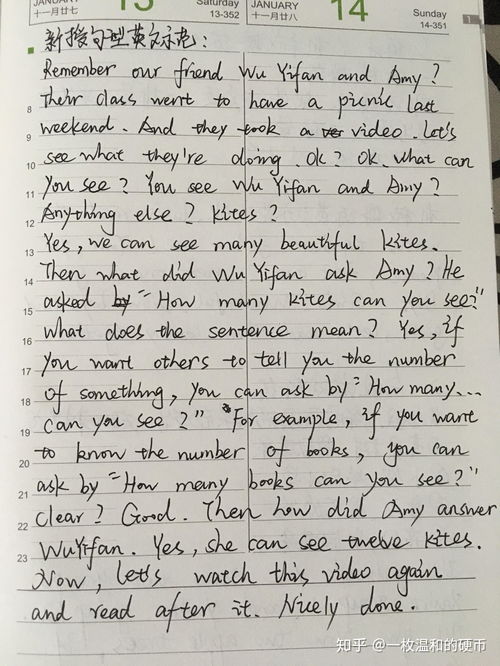 JANUARY 13 Saturday
十一月廿七 13-352
JANUARY 14 Sunday
十一月廿八 14-351
1
新授句型英文示范:
Remember our friend Wu Yifan and Amy?
Their class went to have a picnic last
8
weekend. And they took a video. Let's
9
see what they're doing. Ok? Ok. What can
10
you see? You see Wu Yifan and Amy?
11
Anything else? Kites?
12
Yes, we can see many beautiful kites.
13
Then what did Wu Yifan ask Amy? He
14
asked "How many kites can you see?"
15
What does the sentence mean? Yes, if
16
you want others to tell you the number
17
of something, you can ask by "How many...
18
can you see?" For example, if you want
19
to know the number of books, you can
20
ask by "How many books can you see?"
21
Clear? Good. Then how did Amy answer
22
WuYifan. Yes, she can see twelve kites.
23
Now, let's watch this video again
and read after it. Nicely done.
知乎 @一枚温和的硬币